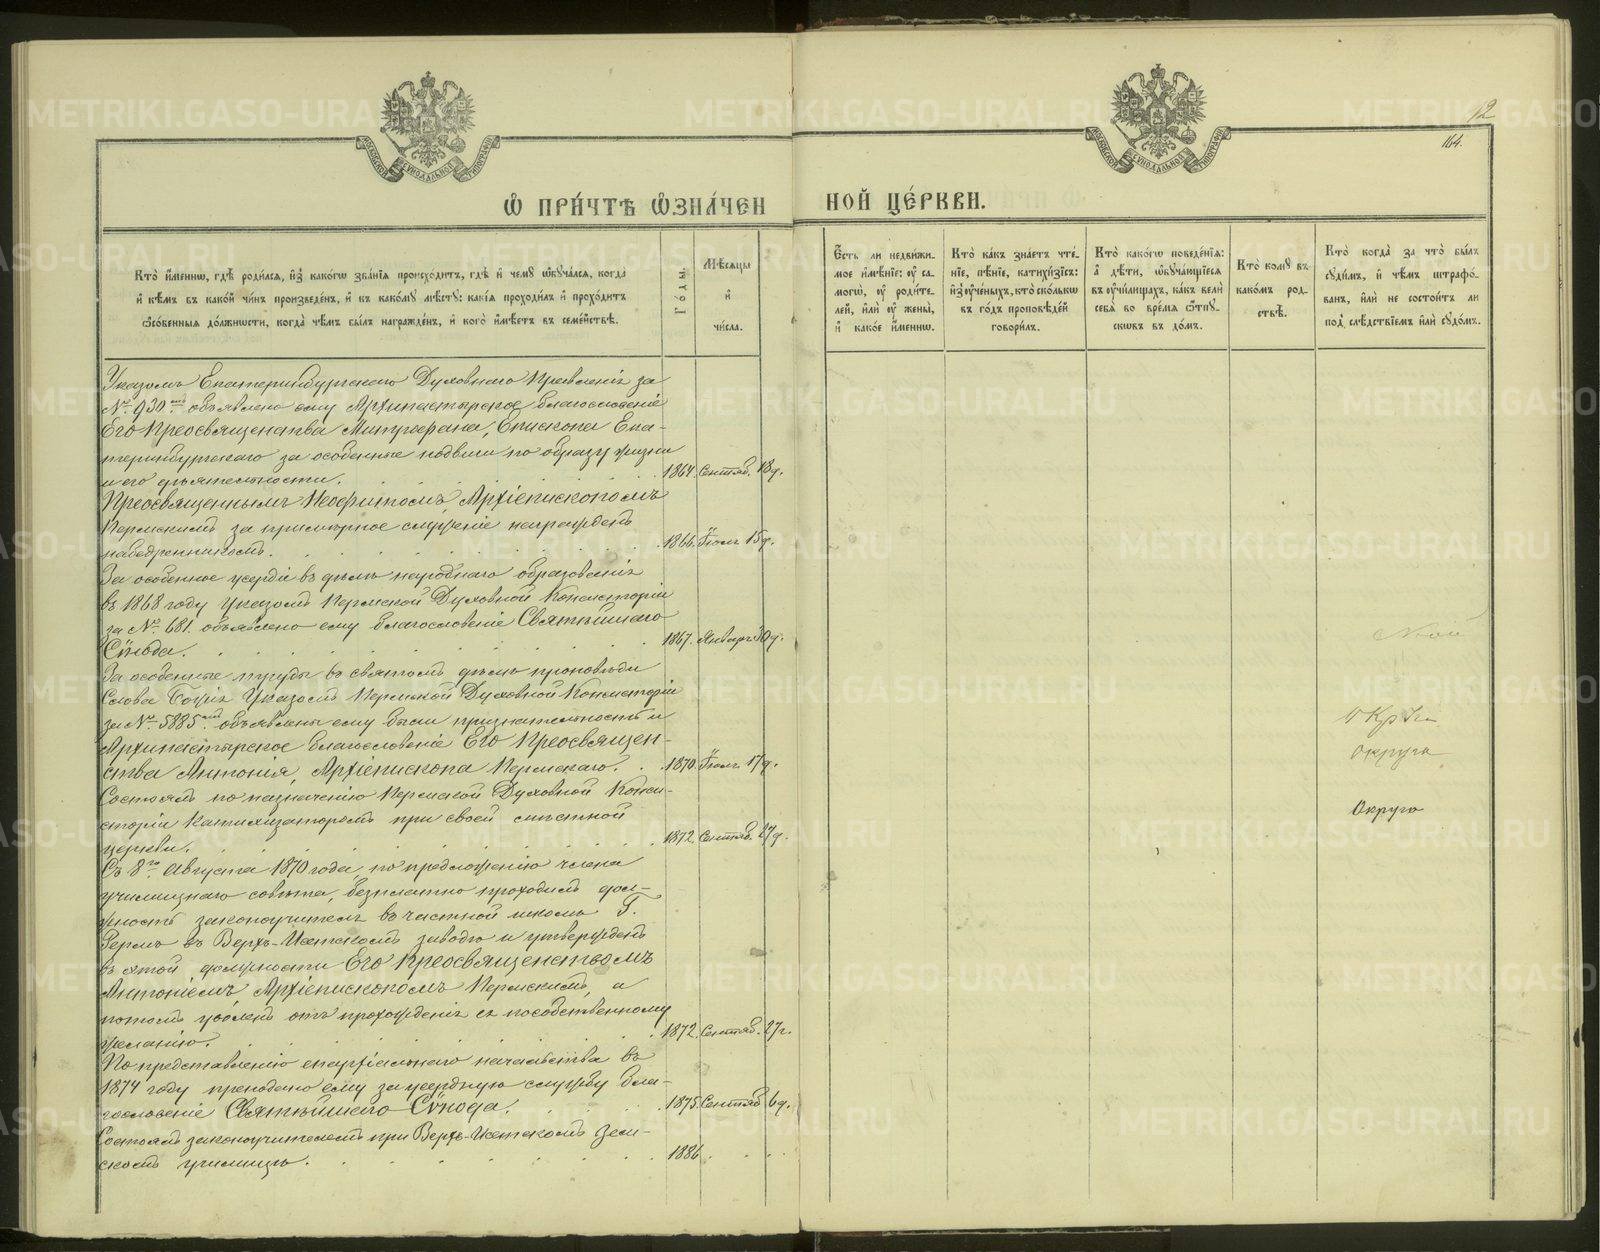 12
164.
МОСКОВСКОЙ СѴНОДАЛЬНОЙ ТИПОГРАФІИ
МОСКОВСКОЙ СѴНОДАЛЬНОЙ ТИПОГРАФІИ
Ѡ ПРИ́ЧТѢ Ѡ҆ЗНА́ЧЕН НОЙ ЦЕ́РКВИ.
Кто̀ и҆́меннѡ, гдѣ̀ роди́лсѧ, и҆з̾ како́гѡ зва́нїѧ происхо́дитъ, гдѣ̀ и҆ чемꙋ̀ ѡ҆бꙋча́лсѧ, когда̀
и҆ кѣ́мъ въ како́й чи́нъ произведе́нъ, и҆ къ како́мꙋ мѣ́стꙋ: какі́ѧ проходи́лъ и҆ прохо́дитъ
ѻ҆со́бенныѧ до́лжности, когда̀ чѣ́мъ бы́лъ награжде́нъ, и҆ кого̀ и҆мѣ́етъ въ семе́йствѣ.
Го́ды.
Мѣ́сѧцы
и҆
чи́сла.
Е҆́сть ли недви́жи-
мое и҆мѣ́нїе: оу҆ са-
могѡ̀, оу҆ роди́те-
лей, и҆лѝ оу҆ жены̀,
и҆ како́е и҆́меннѡ.
Кто̀ ка́къ зна́етъ чте́-
нїе, пѣ́нїе, катихи́зїсъ:
и҆з̾ оу҆че́ныхъ, кто̀ ско́лькѡ
въ го́дъ проповѣ́дей
говори́лъ.
Кто̀ како́гѡ поведе́нїѧ:
а҆ дѣ́ти, ѡ҆бꙋча́ющїесѧ
въ оу҆чи́лищахъ, ка́къ велѝ
себѧ̀ во вре́мѧ ѿпꙋ-
скѡвъ въ до́мъ.
Кто̀ комꙋ̀ въ
како́мъ род-
ствѣ̀.
Кто̀ когда̀ за что̀ бы́лъ
сꙋди́мъ, и҆ чѣ́мъ штрафо́-
ванъ, и҆лѝ не состои́тъ ли
под̾ слѣ́дствїемъ и҆лѝ сꙋдо́мъ.
Указомъ Екатеринбургскаго Духовнаго Правленія за
№ 930мъ объявлено ему Архипастырское благословеніе
Его Преосвященства Митрофана, Епископа Ека-
теринбургскаго за особенные подвиги по образу жизни
и его дѣятельности. 1864. Сентяб. 18 д.
Преосвященнымъ Неофитомъ, Архіепископомъ
Пермскимъ за примѣрное служеніе награжденъ
набедренникомъ. 1866. Іюля 15 д.
За особенное усердіе въ дѣлѣ народнаго образованія
въ 1868 году Указомъ Пермской Духовной Консисторіи
за № 681. объявлено ему благословеніе Святѣйшаго
Сѵнода. 1867. Января 30 д.
За особенные труды въ святомъ дѣлѣ проповѣди
Слова Божія Указомъ Пермской Духовной Консисторіи
за № 5885мъ объявлены ему были признательность и
Архипастырское благословеніе Его Преосвящен-
ства Антонія, Архіепископа Пермскаго. 1870. Іюля 17 д.
Состоялъ по назначенію Пермской Духовной Конси-
сторіи Катихизаторомъ при своей мѣстной
церкви. 1872. Сентяб. 27 д.
Съ 8го Августа 1870 года, по предложенію члена
училищнаго совѣта, безплатно проходилъ дол-
жность законоучителя въ частной школѣ Г.
въ Верхъ-Исетскомъ заводѣ и утвержденъ
въ этой должности Его Преосвященствомъ
Антоніемъ, Архіепископомъ Пермскимъ, а
потомъ уволенъ отъ прохожденія ея по собственному
желанію. 1872. Сентяб. 27 г.
По представленію епархіальнаго начальства въ
1874 году преподано ему за усердную службу бла-
гословеніе Святѣйшаго Сѵнода. 1875. Сентяб 6 д.
Состоялъ законоучителемъ при Верхъ-Исетскомъ зем-
скомъ училищѣ. 1886
округа
Округа
METRIKI.GASO-URAL.RU